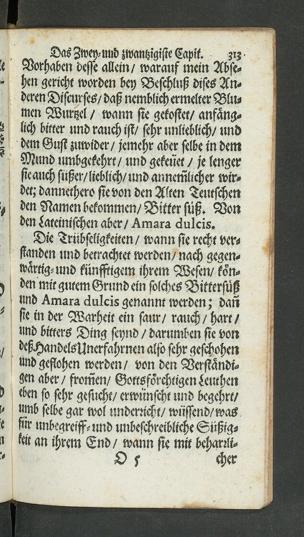 Das Zwey- und zwantzigiste Capit. 313
Vorhaben desse allein / warauf mein Abse-
hen gericht worden bey Beschluß dises An-
deren Discurses / daß nemblich ermelter Blu-
men Wurtzel / wann sie gekostet / anfäng-
lich bitter und rauch ist / sehr unlieblich / und
dem Gust zuwider / jemehr aber selbe in dem
Mund umbgekehrt / und gekeüet / je lenger
sie auch süßer / lieblich / und annemlicher wir-
det; dannethero sie von den Alten Teutschen
den Namen bekommen / Bitter süß. Von
den Lateinischen aber / Amara dulcis.
Die Trübseligkeiten / wann sie recht ver-
standen und betrachtet werden / nach gegen-
wärtig- und künfftigen ihrem Wesen / kön-
den mit gutem Grund ein solches Bittersüß
und Amara dulcis genannt werden; dañ
sie in der Warheit ein saur / rauch / hart /
und bitters Ding seynd / darumben sie von
deß Handels Unerfahrnen also sehr geschohen
und geflohen werden / von den Verständi-
gen aber / from̃en / Gottsförchtigen Leuthen
eben so sehr gesucht / erwünscht und begehrt /
umb selbe gar wol underricht / wüssend / was
für unbegreiff- und unbeschreibliche Süßig-
keit an ihrem End / wann sie mit beharrli-
O 5 cher